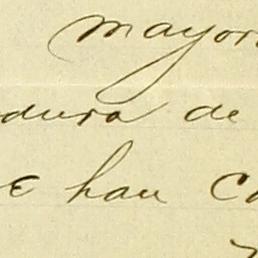 mayor
dura de
han